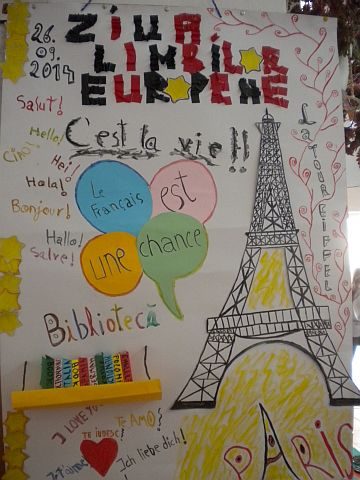 26.
09.
2014
ZIUA
LIMBILOR
EUROPENE
Salut!
Hello!
Ciao!
Hei!
Hola!
Bonjour!
Hallo!
Salve!
C'est la vie!!
Le
Français
est
une
chance
La tour EIFFEL
Bibliotecă
I LOVE YOU
TE AMO!
TE IUBESC!
Je t'aime
Ich liebe dich!
PARIS